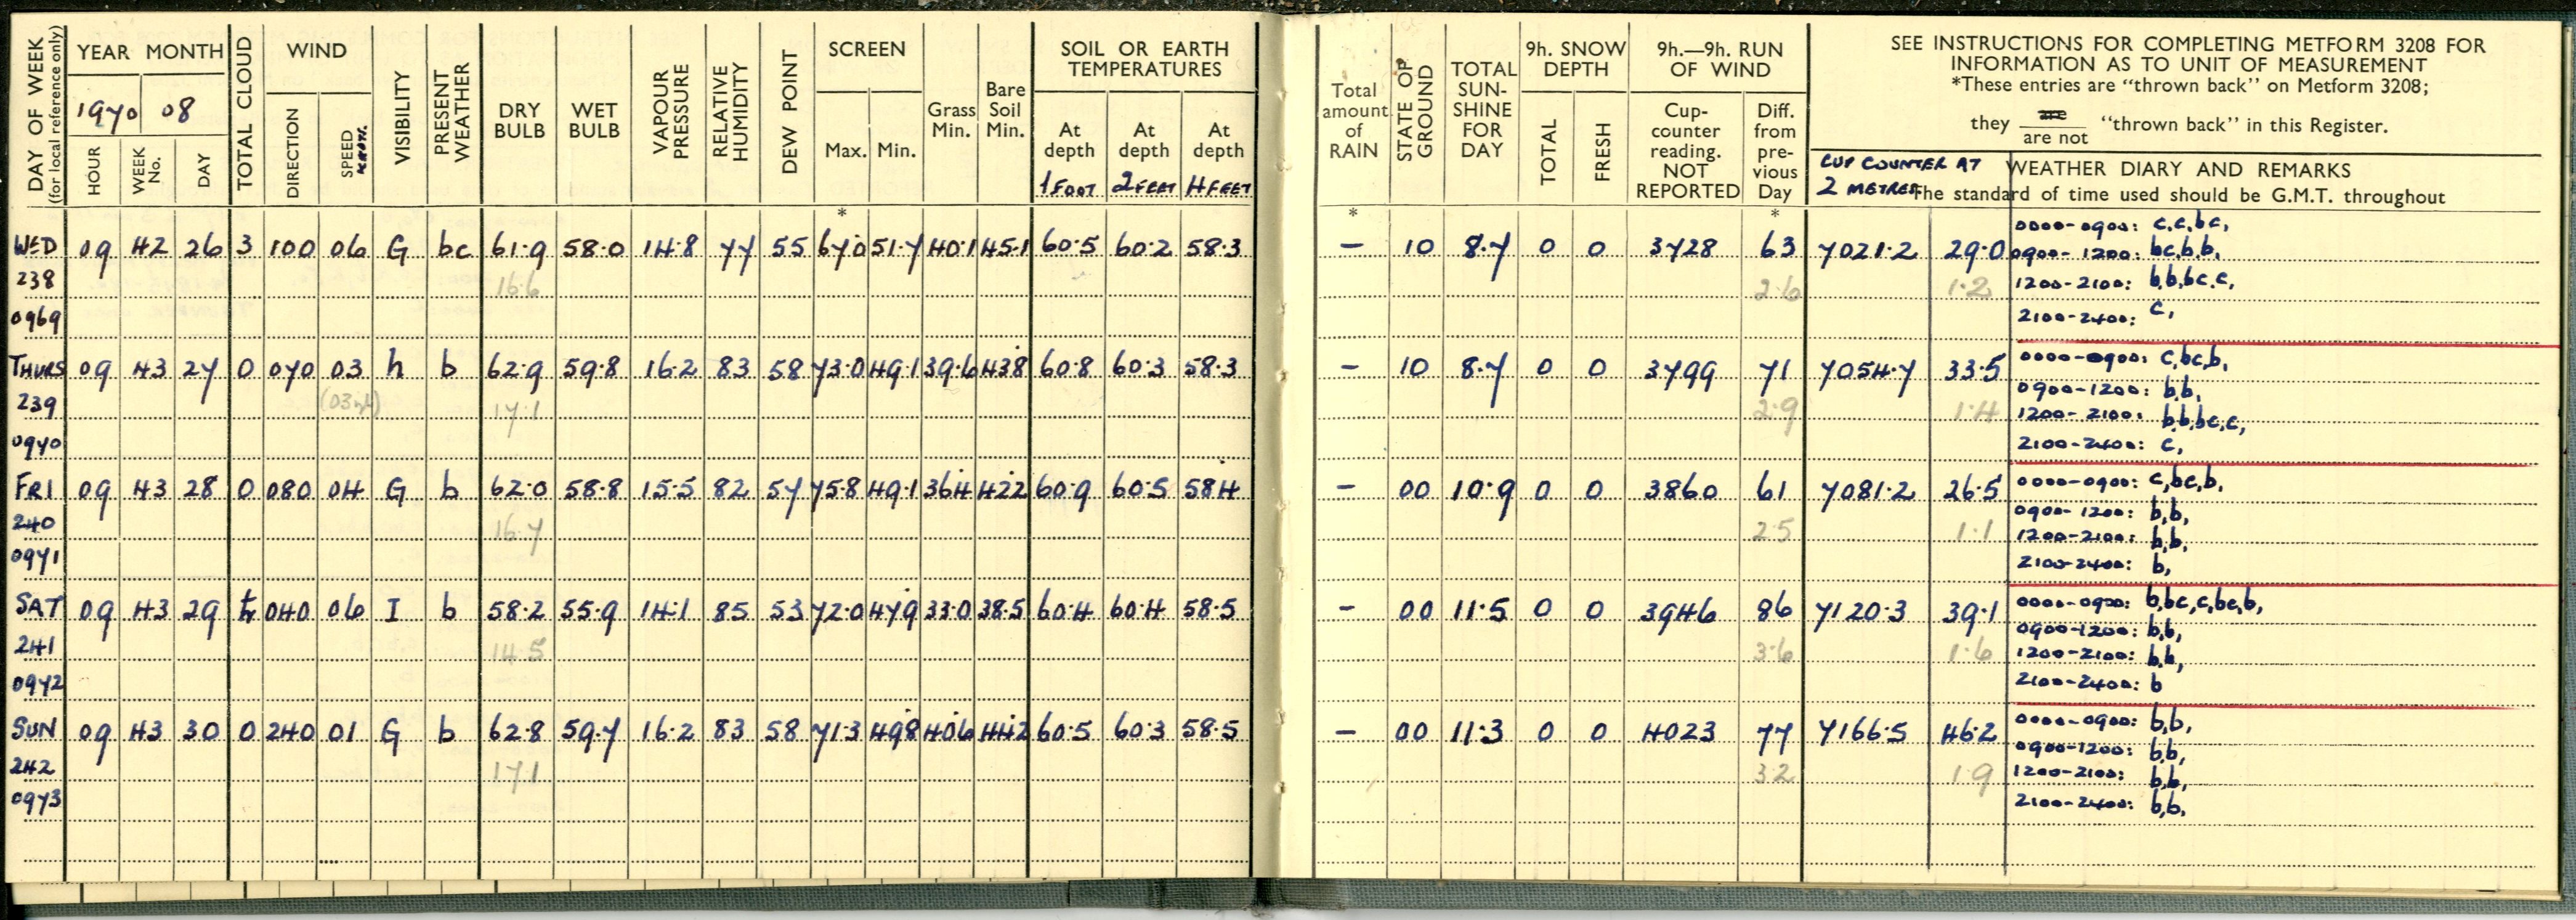 DAY OF WEEK (for local reference only)
YEAR MONTH
1970 08
HOUR WEEK No. DAY
TOTAL CLOUD
WIND
DIRECTION SPEED KNOTS.
VISIBILITY
PRESENT WEATHER
DRY BULB
WET BULB
VAPOUR PRESSURE
RELATIVE HUMIDITY
DEW POINT
SCREEN
Max. Min.
*
Grass Min.
Bare Soil Min.
SOIL OR EARTH TEMPERATURES
At depth 1 FOOT
At depth 2 FEET
At depth 4 FEET
Total amount of RAIN
*
STATE OF GROUND
TOTAL SUN-SHINE FOR DAY
9h. SNOW DEPTH
TOTAL FRESH
9h.—9h. RUN OF WIND
Cup-counter reading. NOT REPORTED
Diff. from pre-vious Day
*
SEE INSTRUCTIONS FOR COMPLETING METFORM 3208 FOR
INFORMATION AS TO UNIT OF MEASUREMENT
*These entries are "thrown back" on Metform 3208;
they are / are not "thrown back" in this Register.
CUP COUNTER AT
2 METRES
WEATHER DIARY AND REMARKS
The standard of time used should be G.M.T. throughout
WED 09 42 26 3 100 06 G bc 61.9 58.0 14.8 77 55 67.0 51.7 40.1 45.1 60.5 60.2 58.3 – 10 8.7 0 0 3728 63 7021.2 29.0
238 16.6 2.6 1.2
0969
0000-0900: c,c,bc,
0900-1200: bc,b,b,
1200-2100: b,b,bc,c,
2100-2400: c,
THURS 09 43 27 0 070 03 h b 62.9 59.8 16.2 83 58 73.0 49.1 39.6 43.8 60.8 60.3 58.3 – 10 8.7 0 0 3799 71 7054.7 33.5
239 17.1 2.9 1.4
0970
0000-0900: c,bc,b,
0900-1200: b,b,
1200-2100: b,b,bc,c,
2100-2400: c,
FRI 09 43 28 0 080 04 G b 62.0 58.8 15.5 82 57 75.8 49.1 36.4 42.2 60.9 60.5 58.4 – 00 10.9 0 0 3860 61 7081.2 26.5
240 16.7 2.5 1.1
0971
0000-0900: c,bc,b,
0900-1200: b,b,
1200-2100: b,b,
2100-2400: b,
SAT 09 43 29 040 06 I b 58.2 55.9 14.1 85 53 72.0 47.9 33.0 38.5 60.4 60.4 58.5 – 00 11.5 0 0 3946 86 7120.3 39.1
241 14.5 3.6 1.6
0972
0000-0900: b,bc,c,bc,b,
0900-1200: b,b,
1200-2100: b,b,
2100-2400: b
SUN 09 43 30 0 240 01 G b 62.8 59.7 16.2 83 58 71.3 49.8 40.6 44.2 60.5 60.3 58.5 – 00 11.3 0 0 4023 77 7166.5 46.2
242 17.1 3.2 1.9
0973
0000-0900: b,b,
0900-1200: b,b,
1200-2100: b,b,
2100-2400: b,b,